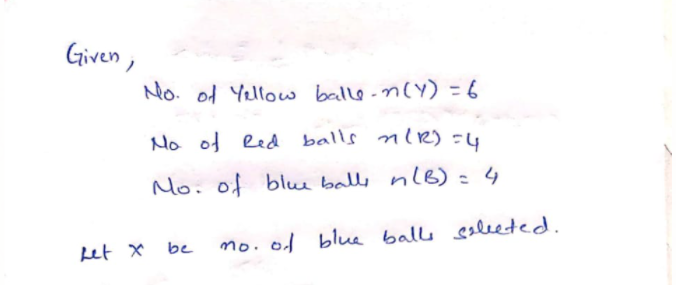 Given,
No. of Yellow balls - n(Y) = 6
No of Red balls n(R) = 4
No. of blue balls n(B) = 4
Let x be no. of blue balls selected.